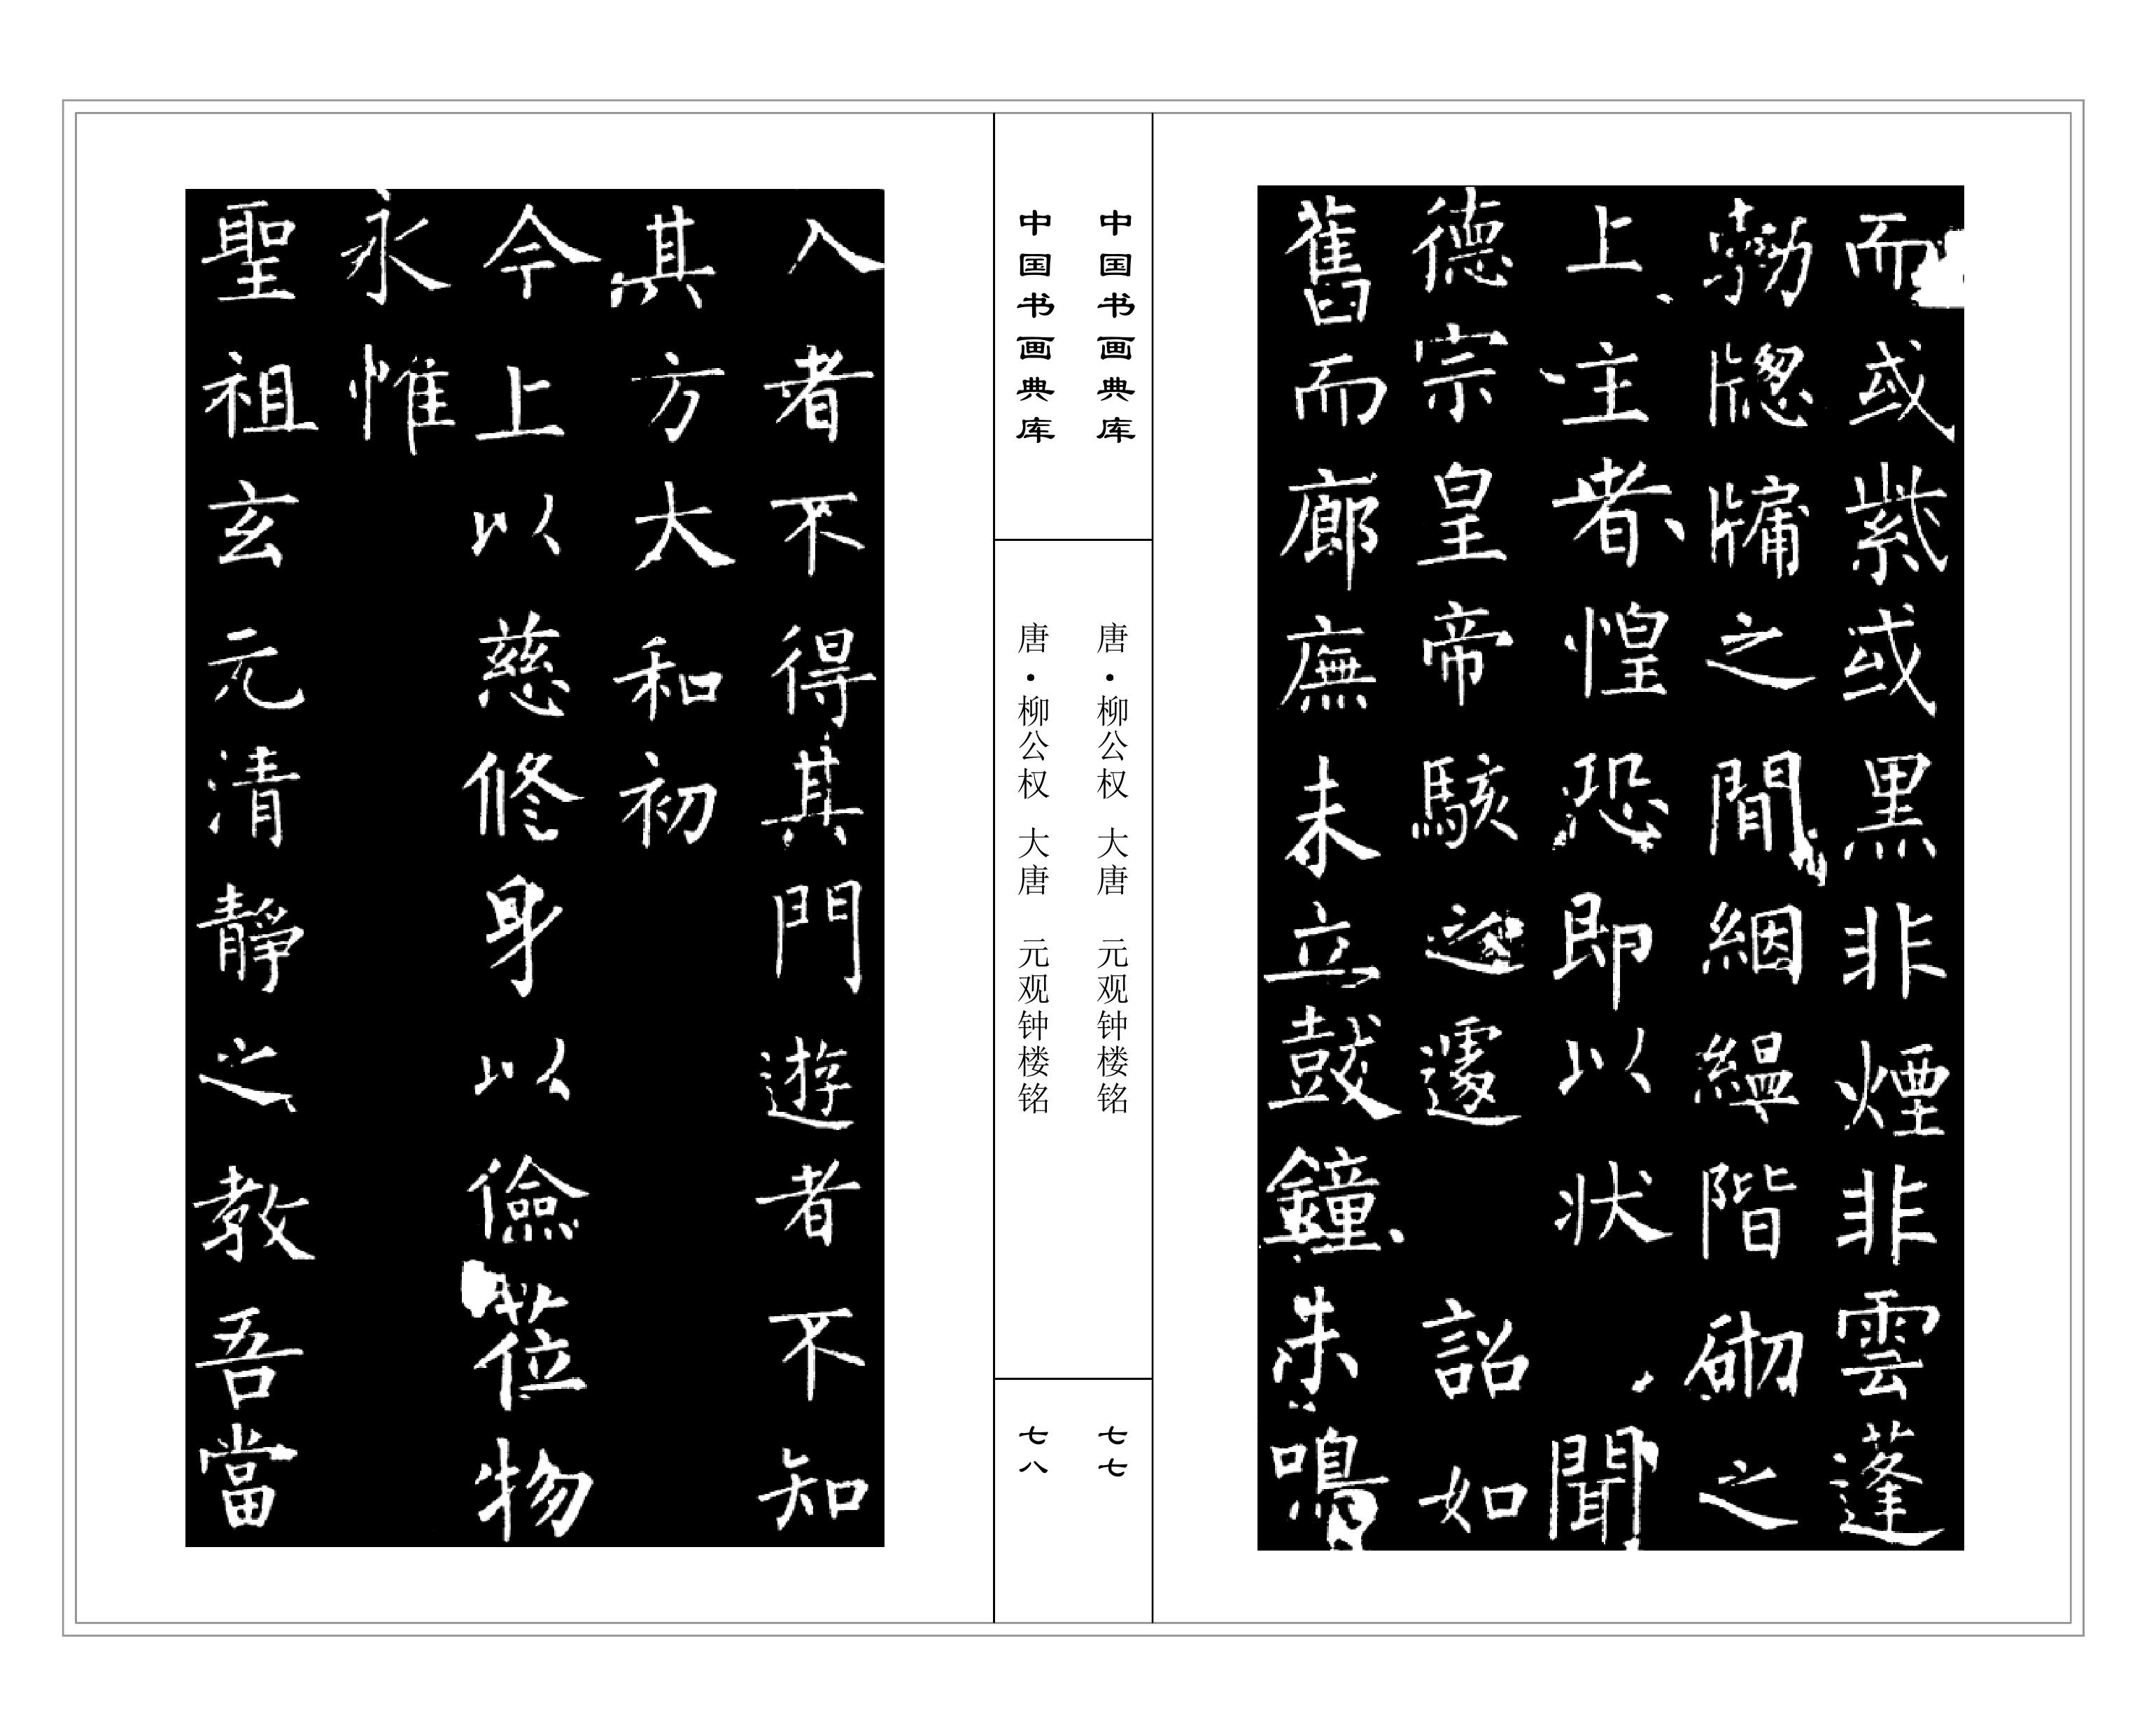 而或紫或黑非煙非雲蓬
勃牎牖之間絪緼階砌之
上主者惶恐即以状聞
德宗皇帝駭之遽詔如
舊而廊廡未立鼓鐘未鳴
中国书画典库
唐·柳公权 大唐 元观钟楼铭
七七
中国书画典库
唐·柳公权 大唐 元观钟楼铭
七八
入者不得其門遊者不知
其方大和初
今上以慈修身以儉莅物
永惟
聖祖玄元清靜之教吾當